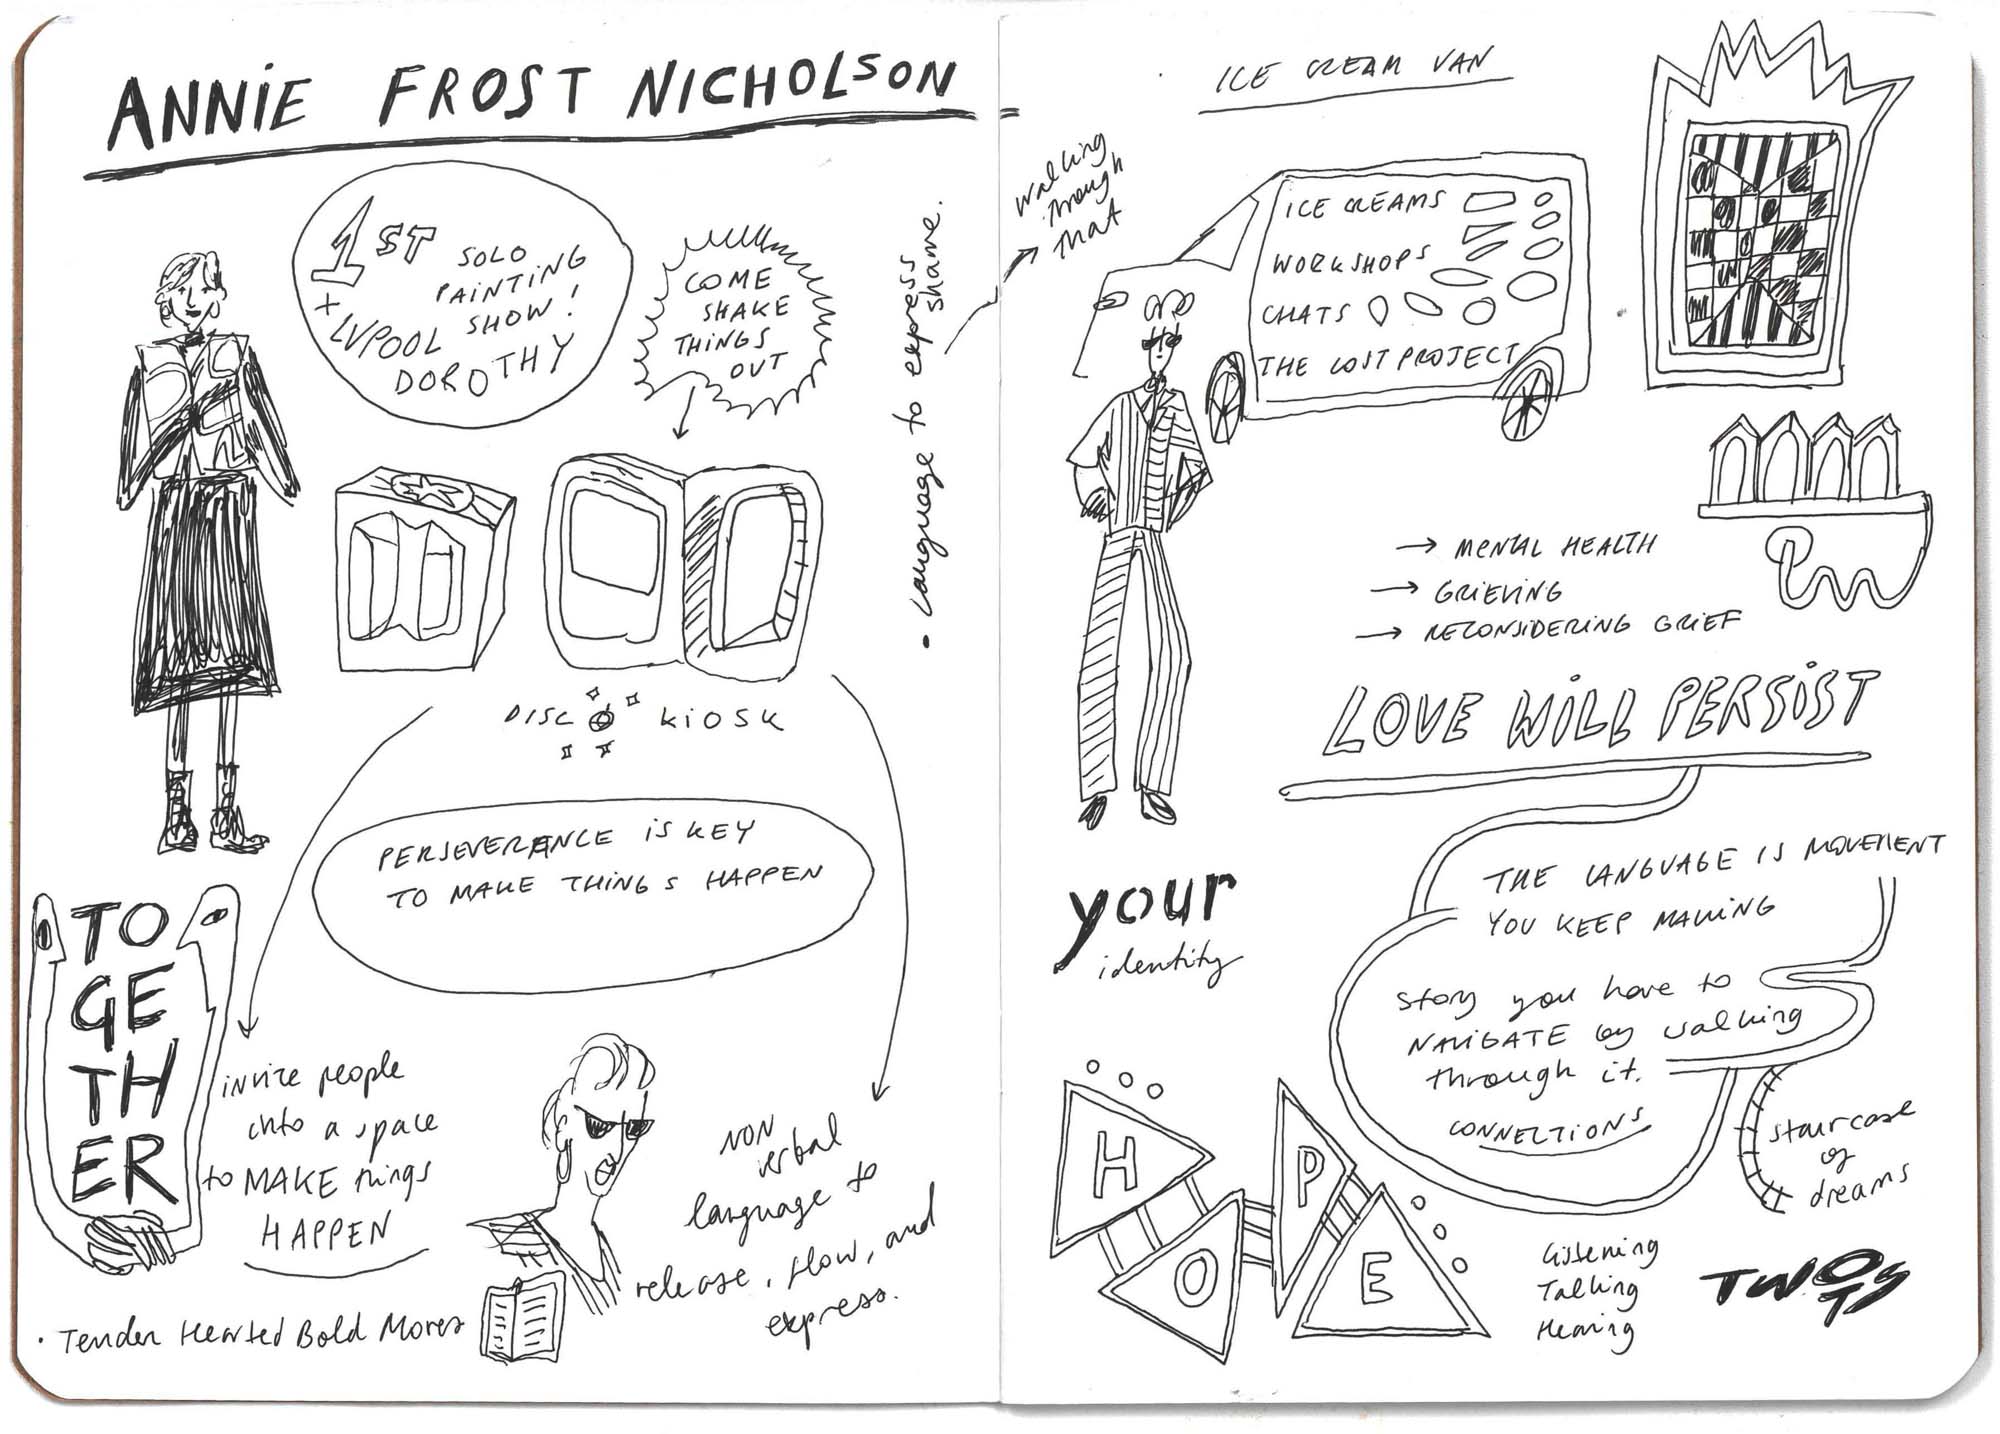 ANNiE FROST NICHOLSON
1ST SOLO
PAINTING
SHOW!
+ LVPOOL
DOROTHY
COME
SHAKE
THINGS
OUT
• Language to express
shame.
DISCO KiOSK
PERSEVERANCE iS KEY
TO MAKE THiNGS HAPPEN
TO
GE
TH
ER
iNViTE people
into a space
to MAKE things
HAPPEN
NON
verbal
language to
release, flow, and
express.
• Tender Hearted Bold Moves
ICE CREAM VAN
Walking
through
that
ICE CREAMS
WORKSHOPS
CHATS
THE LOST PROJECT
→ MENTAL HEALTH
→ GRiEViNG
→ RECONSIDERING GRIEF
LOVE WiLL PERSiST
your
identity
THE LANGUAGE IS MOVEMENT
YOU KEEP MAKiNG
Story you have to
NAViGATE by walking
through it.
CONNECTIONS
staircase
of
dreams
HOPE
Listening
Talking
Hearing